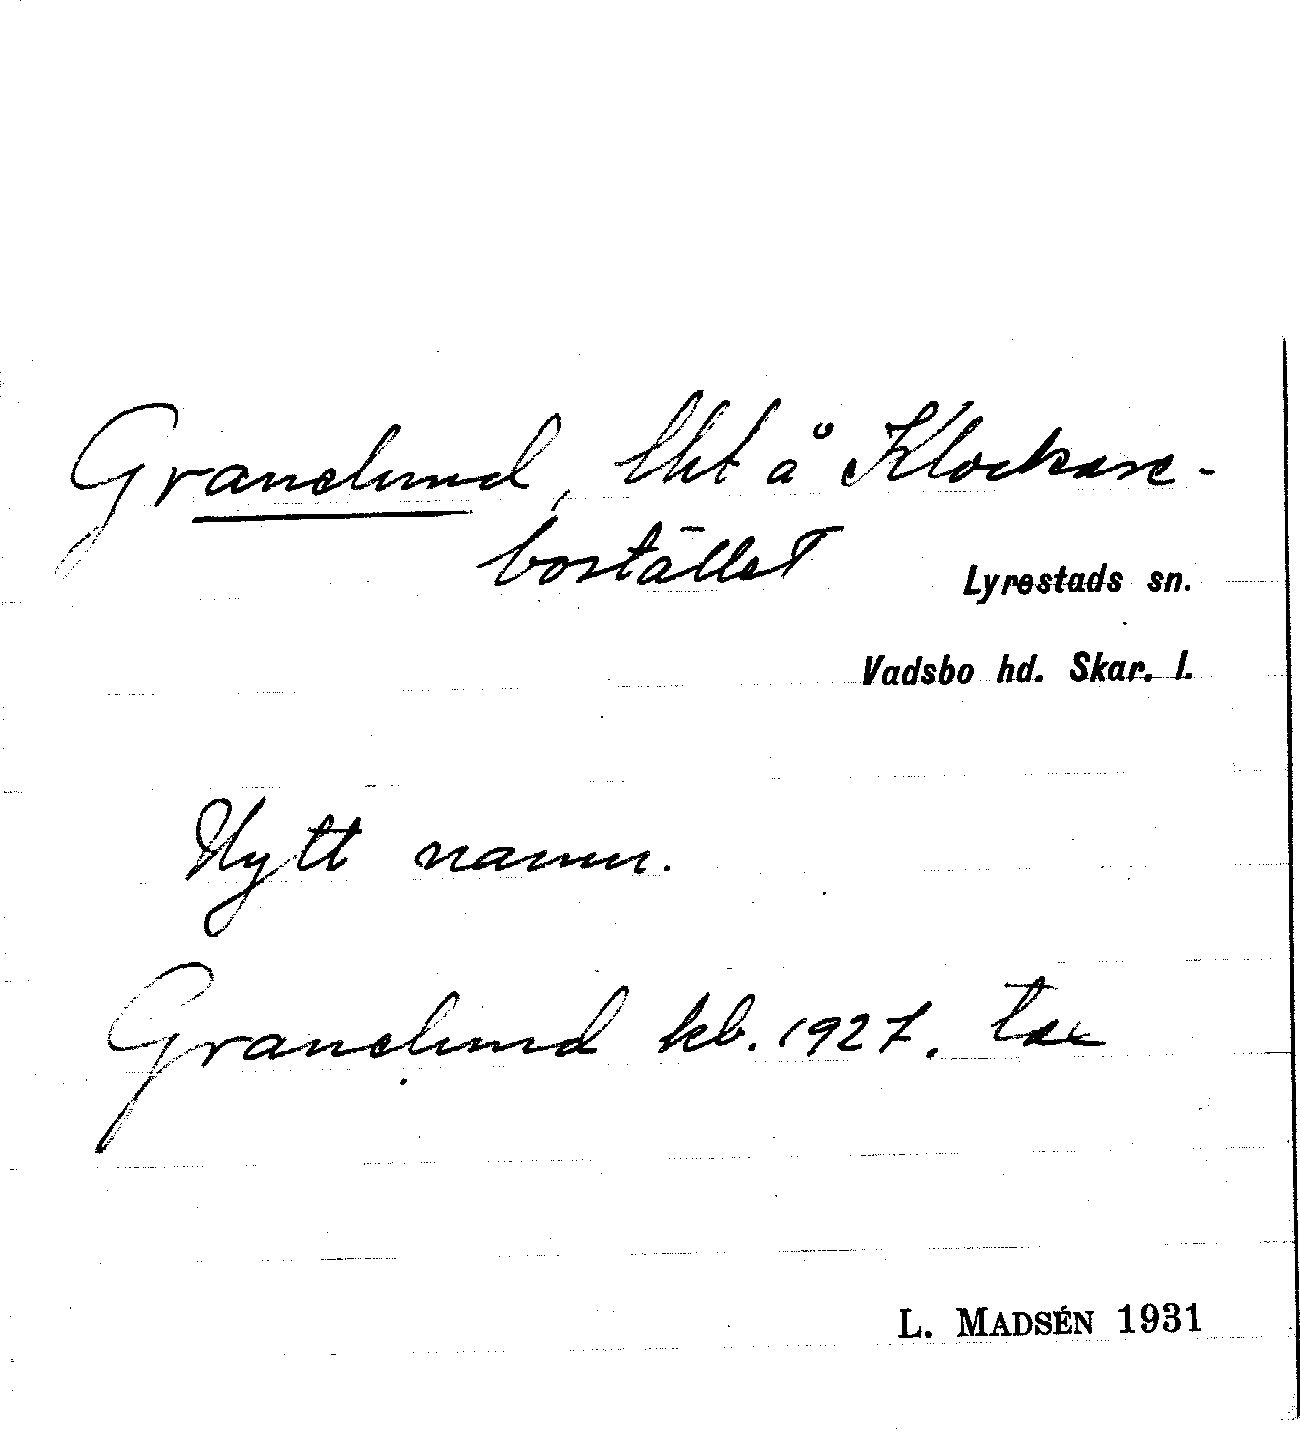 Granelund, lht å Klockare-
bostället
Lyrestads sn.
Vadsbo hd. Skar. l.
Nytt namn.
Granelund kb. 1927.
L. MADSÉN 1931